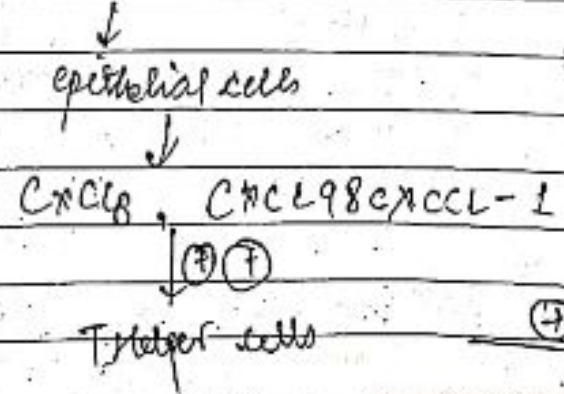 ↓
epithelial cells
↓
CxCL8, CxCL98CxCCL-1
↓ ⊕ ⊕
T Helper cells